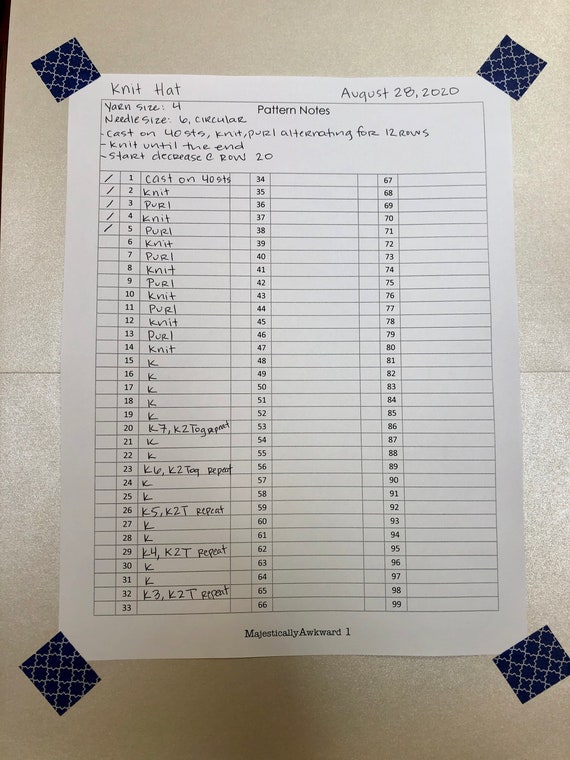 Knit Hat August 28, 2020
Yarn size: 4 Pattern Notes
Needle size: 6, circular
- Cast on 40 sts, knit, purl alternating for 12 rows
- Knit until the end
- Start decrease @ Row 20
/ 1 Cast on 40 sts 34 67
/ 2 Knit 35 68
/ 3 Purl 36 69
/ 4 Knit 37 70
/ 5 Purl 38 71
6 Knit 39 72
7 Purl 40 73
8 Knit 41 74
9 Purl 42 75
10 Knit 43 76
11 Purl 44 77
12 Knit 45 78
13 Purl 46 79
14 Knit 47 80
15 K 48 81
16 K 49 82
17 K 50 83
18 K 51 84
19 K 52 85
20 K7, K2Tog repeat 53 86
21 K 54 87
22 K 55 88
23 K6, K2Tog Repeat 56 89
24 K 57 90
25 K 58 91
26 K5, K2T Repeat 59 92
27 K 60 93
28 K 61 94
29 K4, K2T Repeat 62 95
30 K 63 96
31 K 64 97
32 K3, K2T Repeat 65 98
33 66 99
MajesticallyAwkward 1